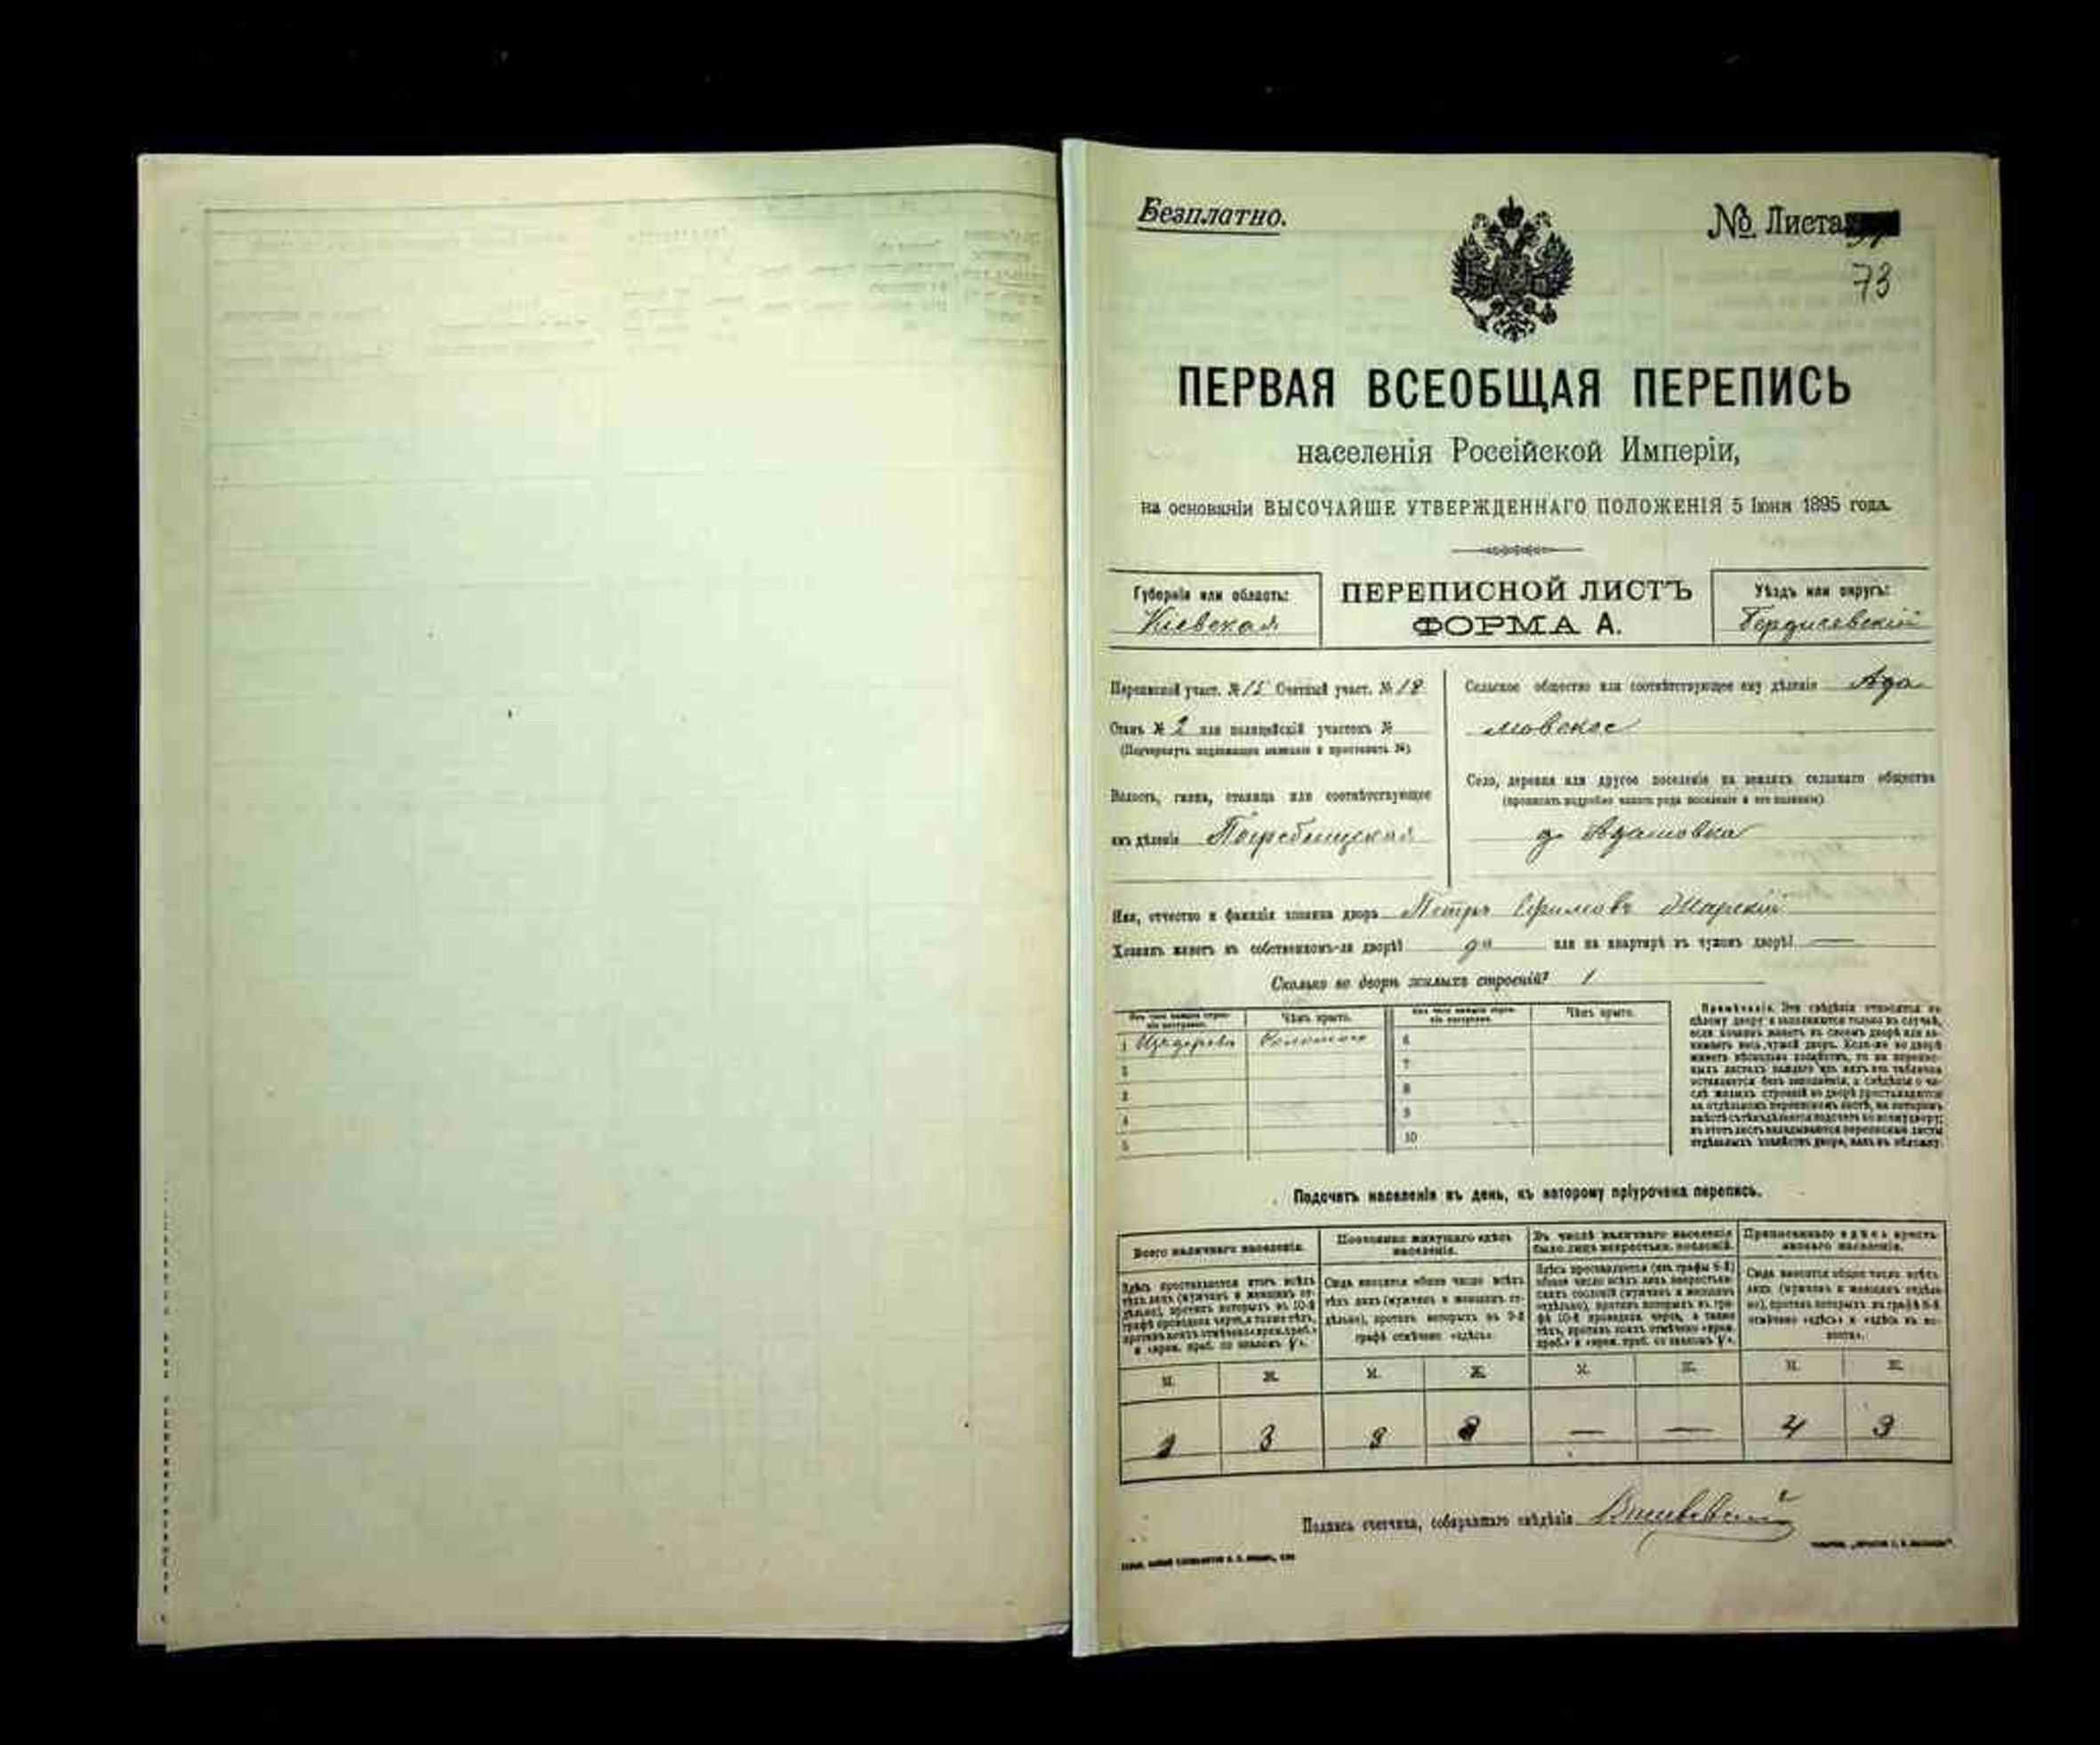 Безплатно.
№ Листа
73
ПЕРВАЯ ВСЕОБЩАЯ ПЕРЕПИСЬ
населенія Россійской Имперіи,
на основаніи ВЫСОЧАЙШЕ УТВЕРЖДЕННАГО ПОЛОЖЕНІЯ 5 Іюня 1895 года.
Губернія или область:
Кіевская
ПЕРЕПИСНОЙ ЛИСТЪ
ФОРМА А.
Уѣздъ или округъ:
Бердичевскій
Переписной участ. № 15 Счетный участ. № 18
Станъ № 2 или полицейскій участокъ №
(Подчеркнуть надлежащее названіе и проставить №)
Волость, гмина, станица или соотвѣтствующее
имъ дѣленіе Погребищская
Сельское общество или соотвѣтствующее ему дѣленіе Ада
мовское
Село, деревня или другое поселеніе на земляхъ сельскаго общества
(прописать подробно какого рода поселеніе и его названіе)
д Адамовка
Имя, отчество и фамилія хозяина двора Петръ Ефимовъ
Хозяинъ живетъ въ собственномъ-ли дворѣ? да или на квартирѣ въ чужомъ дворѣ? —
Сколько во дворѣ жилыхъ строеній? 1
Изъ чего каждое строеніе построено.
Чѣмъ крыто.
Изъ чего каждое строеніе построено.
Чѣмъ крыто.
1 Изъ дерева Соломою 6
2 7
3 8
4 9
5 10
Примѣчаніе. Эти свѣдѣнія относятся къ
цѣлому двору и заполняются только въ случаѣ,
если хозяинъ живетъ въ своемъ дворѣ или за-
нимаетъ весь чужой дворъ. Если-же во дворѣ
живетъ нѣсколько хозяйствъ, то на перепис-
ныхъ листахъ каждаго изъ нихъ эта табличка
оставляется безъ заполненія, а свѣдѣнія о чи-
слѣ жилыхъ строеній во дворѣ проставляются
на отдѣльномъ переписномъ листѣ, на которомъ
вмѣстѣ съ тѣмъ дѣлается подсчетъ по всему двору;
въ этотъ листъ вкладываются переписные листы
отдѣльныхъ хозяйствъ двора, какъ въ обложку.
Подсчетъ населенія въ день, къ которому пріурочена перепись.
Всего наличнаго населенія.
Постоянно живущаго здѣсь
населенія.
Въ числѣ наличнаго населенія
было лицъ некрестьян. сословій.
Приписаннаго здѣсь кресть-
янскаго населенія.
Здѣсь проставляется итогъ всѣхъ
тѣхъ лицъ (мужчинъ и женщинъ от-
дѣльно), противъ которыхъ въ 10-й
графѣ проведена черта, а также тѣхъ,
противъ коихъ отмѣчено «врем. преб.»
и «врем. преб. со знакомъ V».
Сюда вносится общее число всѣхъ
тѣхъ лицъ (мужчинъ и женщинъ от-
дѣльно), противъ которыхъ въ 9-й
графѣ отмѣчено «здѣсь».
Здѣсь проставляется (изъ графы 6-й)
общее число всѣхъ лицъ некрестьян-
скихъ сословій (мужчинъ и женщинъ
отдѣльно), противъ которыхъ въ гра-
фѣ 10-й проведена черта, а также
тѣхъ, противъ коихъ отмѣчено «врем.
преб.» и «врем. преб. со знакомъ V».
Сюда вносится общее число всѣхъ
лицъ (мужчинъ и женщинъ отдѣль-
но), противъ которыхъ въ графѣ 8-й
отмѣчено «здѣсь» и «здѣсь въ во-
лости».
М. Ж. М. Ж. М. Ж. М. Ж.
3 3 — — 4 3
Подпись счетчика, собиравшаго свѣдѣнія